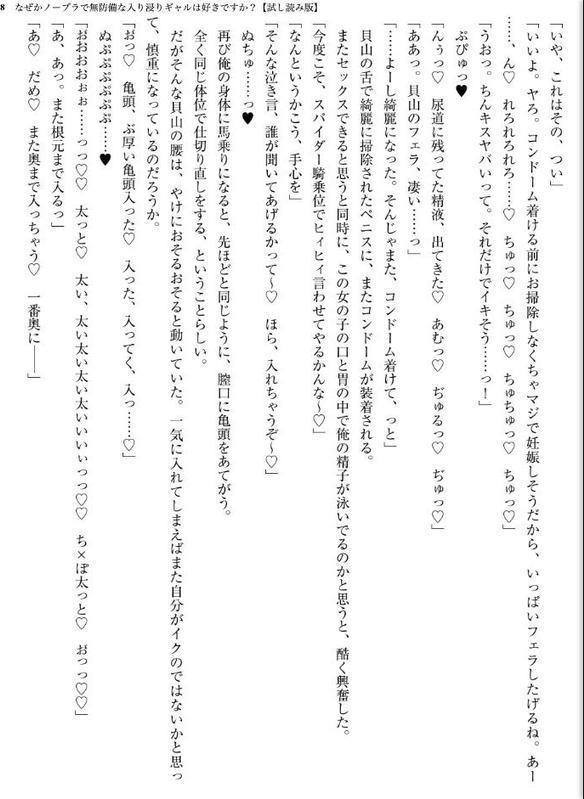 8 なぜかノーブラで無防備な入り浸りギャルは好きですか?【試し読み版】
「いや、これはその、つい」
「いいよ。ヤろ。コンドーム着ける前にお掃除しなくちゃマジで妊娠しそうだから、いっぱいフェラしたげるね。あー
……、ん♡　れろれろれろ……♡　ちゅっ♡　ちゅっ♡　ちゅちゅっ♡　ちゅっ♡」
「うおっ。ちんキスヤバいって。それだけでイキそう……っ！」
ぷぴゅっ♥
「んぅっ♡　尿道に残ってた精液、出てきた♡　あむっ♡　ぢゅるっ♡　ぢゅっ♡」
「ああっ。貝山のフェラ、凄い……っ」
「……よーし綺麗になった。そんじゃまた、コンドーム着けて、っと」
貝山の舌で綺麗に掃除されたペニスに、またコンドームが装着される。
またセックスできると思うと同時に、この女の子の口と胃の中で俺の精子が泳いでるのかと思うと、酷く興奮した。
「今度こそ、スパイダー騎乗位でヒィヒィ言わせてやるかんな～♡」
「なんというかこう、手心を」
「そんな泣き言、誰が聞いてあげるかって～♡　ほら、入れちゃうぞ～♡」
ぬちゅ……っ♥
再び俺の身体に馬乗りになると、先ほどと同じように、膣口に亀頭をあてがう。
全く同じ体位で仕切り直しをする、ということらしい。
だがそんな貝山の腰は、やけにおそるおそると動いていた。一気に入れてしまえばまた自分がイクのではないかと思っ
て、慎重になっているのだろうか。
「おっ♡　亀頭、ぶ厚い亀頭入った♡　入った、入ってく、入っ……♡」
ぬぷぷぷぷぷぷ……♥
「おおおおぉぉ……っっ♡♡　太っと♡　太い、太い太い太い太いいいぃっっ♡♡　ち×ぽ太っと♡　おっっ♡♡」
「あ、あっ。また根元まで入るっ」
「あ♡　だめ♡　また奥まで入っちゃう♡　一番奥に――」